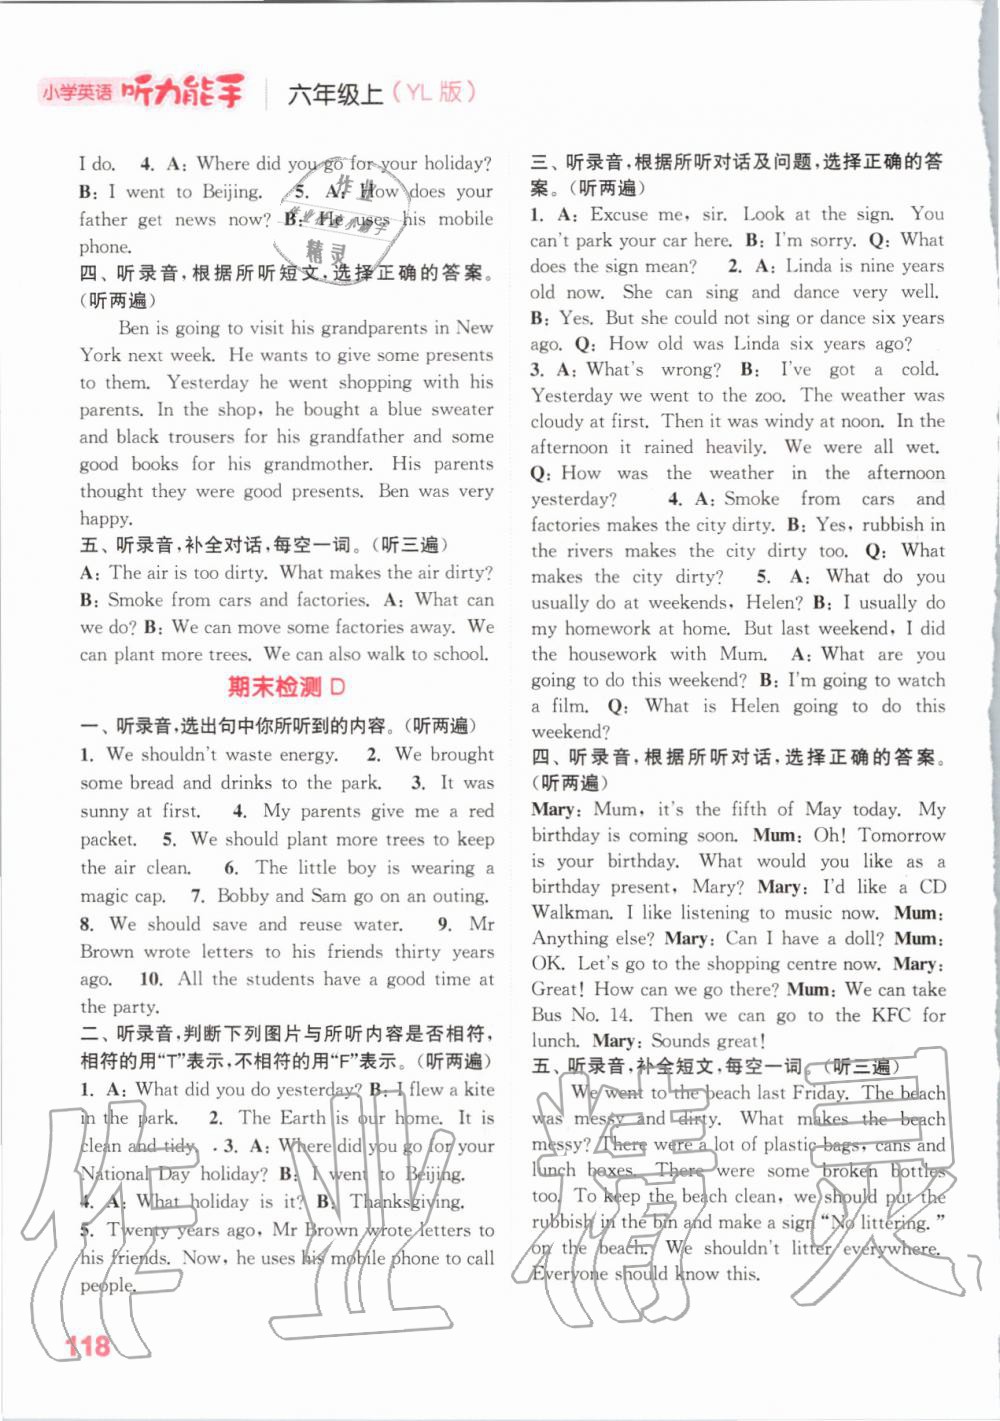 小学英语 听力能手 六年级上（YL版）
I do. 4. A: Where did you go for your holiday?
B: I went to Beijing. 5. A: How does your
father get news now? B: He uses his mobile
phone.
四、听录音,根据所听短文,选择正确的答案。
(听两遍)
Ben is going to visit his grandparents in New
York next week. He wants to give some presents
to them. Yesterday he went shopping with his
parents. In the shop, he bought a blue sweater
and black trousers for his grandfather and some
good books for his grandmother. His parents
thought they were good presents. Ben was very
happy.
五、听录音,补全对话,每空一词。(听三遍)
A: The air is too dirty. What makes the air dirty?
B: Smoke from cars and factories. A: What can
we do? B: We can move some factories away. We
can plant more trees. We can also walk to school.
期末检测 D
一、听录音,选出句中你所听到的内容。(听两遍)
1. We shouldn't waste energy. 2. We brought
some bread and drinks to the park. 3. It was
sunny at first. 4. My parents give me a red
packet. 5. We should plant more trees to keep
the air clean. 6. The little boy is wearing a
magic cap. 7. Bobby and Sam go on an outing.
8. We should save and reuse water. 9. Mr
Brown wrote letters to his friends thirty years
ago. 10. All the students have a good time at
the party.
二、听录音,判断下列图片与所听内容是否相符,
相符的用“T”表示,不相符的用“F”表示。(听两遍)
1. A: What did you do yesterday? B: I flew a kite
in the park. 2. The Earth is our home. It is
clean and tidy. 3. A: Where did you go for your
National Day holiday? B: I went to Beijing.
4. A: What holiday is it? B: Thanksgiving.
5. Twenty years ago, Mr Brown wrote letters to
his friends. Now, he uses his mobile phone to call
people.
118
三、听录音,根据所听对话及问题,选择正确的答
案。(听两遍)
1. A: Excuse me, sir. Look at the sign. You
can't park your car here. B: I'm sorry. Q: What
does the sign mean? 2. A: Linda is nine years
old now. She can sing and dance very well.
B: Yes. But she could not sing or dance six years
ago. Q: How old was Linda six years ago?
3. A: What's wrong? B: I've got a cold.
Yesterday we went to the zoo. The weather was
cloudy at first. Then it was windy at noon. In the
afternoon it rained heavily. We were all wet.
Q: How was the weather in the afternoon
yesterday? 4. A: Smoke from cars and
factories makes the city dirty. B: Yes, rubbish in
the rivers makes the city dirty too. Q: What
makes the city dirty? 5. A: What do you
usually do at weekends, Helen? B: I usually do
my homework at home. But last weekend, I did
the housework with Mum. A: What are you
going to do this weekend? B: I'm going to watch
a film. Q: What is Helen going to do this
weekend?
四、听录音,根据所听对话,选择正确的答案。
(听两遍)
Mary: Mum, it's the fifth of May today. My
birthday is coming soon. Mum: Oh! Tomorrow
is your birthday. What would you like as a
birthday present, Mary? Mary: I'd like a CD
Walkman. I like listening to music now. Mum:
Anything else? Mary: Can I have a doll? Mum:
OK. Let's go to the shopping centre now. Mary:
Great! How can we go there? Mum: We can take
Bus No. 14. Then we can go to the KFC for
lunch. Mary: Sounds great!
五、听录音,补全短文,每空一词。(听三遍)
We went to the beach last Friday. The beach
was messy and dirty. What makes the beach
messy? There were a lot of plastic bags, cans and
lunch boxes. There were some broken bottles
too. To keep the beach clean, we should put the
rubbish in the bin and make a sign “No littering.”
on the beach. We shouldn't litter everywhere.
Everyone should know this.
作业精灵